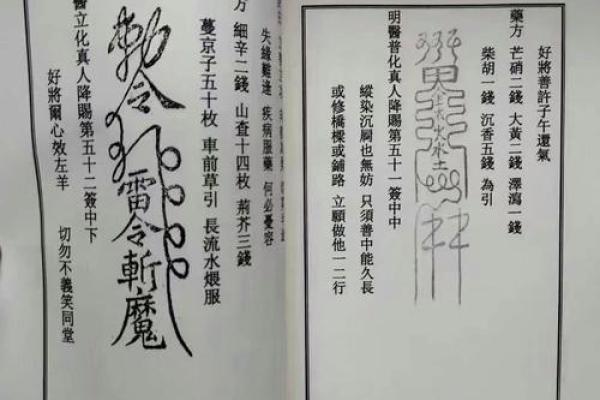 好將善許子午還氣
藥方 芒硝二錢 大黃二錢 澤瀉一錢
柴胡一錢 沉香五錢 為引
明醫普化真人降賜第五十一簽中中
縱染沉屙也無妨 只須善中能久長
或修橋樑或鋪路 立願做他一二行
失緣難逢 疾病服藥 何必憂容
方 細辛二錢 山查十四枚 荊芥三錢
蔓京子五十枚 車前草引 長流水煨服
敕令 雷令斬魔
醫立化真人降賜第五十二簽中下
好將爾心效左羊 切勿不義笑同堂